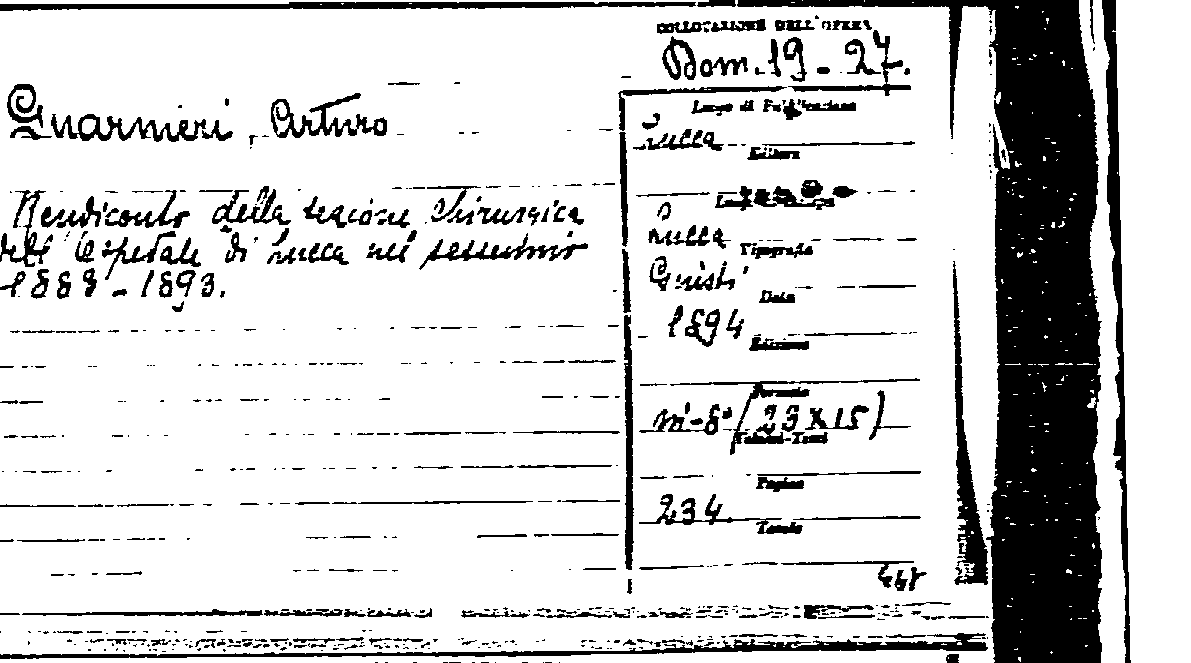 COLLOCAZIONE DELL'OPERA
Dom. 19 - 27.
Guarnieri, Arturo
Luogo di Pubblicazione
Lucca
Editore
Rendiconto della sezione chirurgica
dell'Ospedale di Lucca nel sessennio
1888 - 1893.
Lucca
Tipografia
Giusti
Data
1894
Edizione
Formato
in-8° (23 x 15)
Volumi-Tomi
Pagine
234.
Tavole